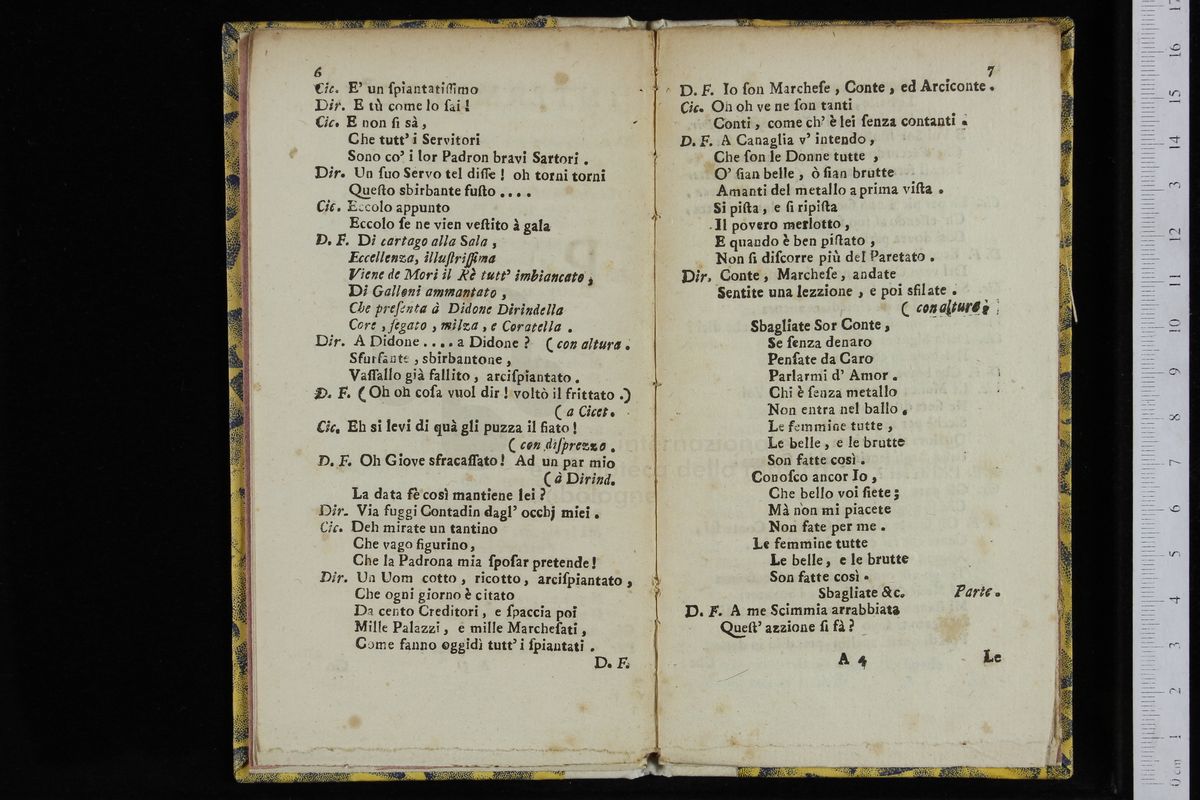 6
Cic. E' un ſpiantatiſſimo
Dir. E tù come lo ſai!
Cic. E non ſi sà,
Che tutt' i Servitori
Sono co' i lor Padron bravi Sartori.
Dir. Un ſuo Servo tel diſſe! oh torni torni
Queſto sbirbante fuſto....
Cic. Eccolo appunto
Eccolo ſe ne vien veſtito à gala
D. F. Di cartago alla Sala,
Eccellenza, illuſtriſſima
Viene de Mori il Rè tutt' imbiancato,
Di Galloni ammantato,
Che preſenta à Didone Dirindella
Core, fegato, milza, e Coratella.
Dir. A Didone.... a Didone? (con altura.
Sfurfante, sbirbantone,
Vaſſallo già fallito, arciſpiantato.
D. F. (Oh oh coſa vuol dir! voltò il frittato.)
(a Cicet.
Cic. Eh si levi di quà gli puzza il fiato!
(con diſprezzo.
D. F. Oh Giove sfracaſſato! Ad un par mio
(à Dirind.
La data fè così mantiene lei?
Dir. Via fuggi Contadin dagl' occhj miei.
Cic. Deh mirate un tantino
Che vago figurino,
Che la Padrona mia ſpoſar pretende!
Dir. Un Uom cotto, ricotto, arciſpiantato,
Che ogni giorno è citato
Da cento Creditori, e ſpaccia poi
Mille Palazzi, e mille Marcheſati,
Come fanno oggidì tutt' i ſpiantati.
D. F.
7
D. F. Io ſon Marcheſe, Conte, ed Arciconte.
Cic. Oh oh ve ne ſon tanti
Conti, come ch' è lei ſenza contanti.
D. F. A Canaglia v' intendo,
Che ſon le Donne tutte,
O' ſian belle, ò ſian brutte
Amanti del metallo a prima viſta.
Si piſta, e ſi ripiſta
Il povero merlotto,
E quando è ben piſtato,
Non ſi diſcorre più del Paretato.
Dir. Conte, Marcheſe, andate
Sentite una lezzione, e poi sfilate.
(con altura.
Sbagliate Sor Conte,
Se ſenza denaro
Penſate da Caro
Parlarmi d' Amor.
Chi è ſenza metallo
Non entra nel ballo.
Le femmine tutte,
Le belle, e le brutte
Son fatte così.
Conoſco ancor Io,
Che bello voi ſiete;
Mà non mi piacete
Non fate per me.
Le femmine tutte
Le belle, e le brutte
Son fatte così.
Sbagliate &c. Parte.
D. F. A me Scimmia arrabbiata
Queſt' azzione ſi fà?
A 4 Le